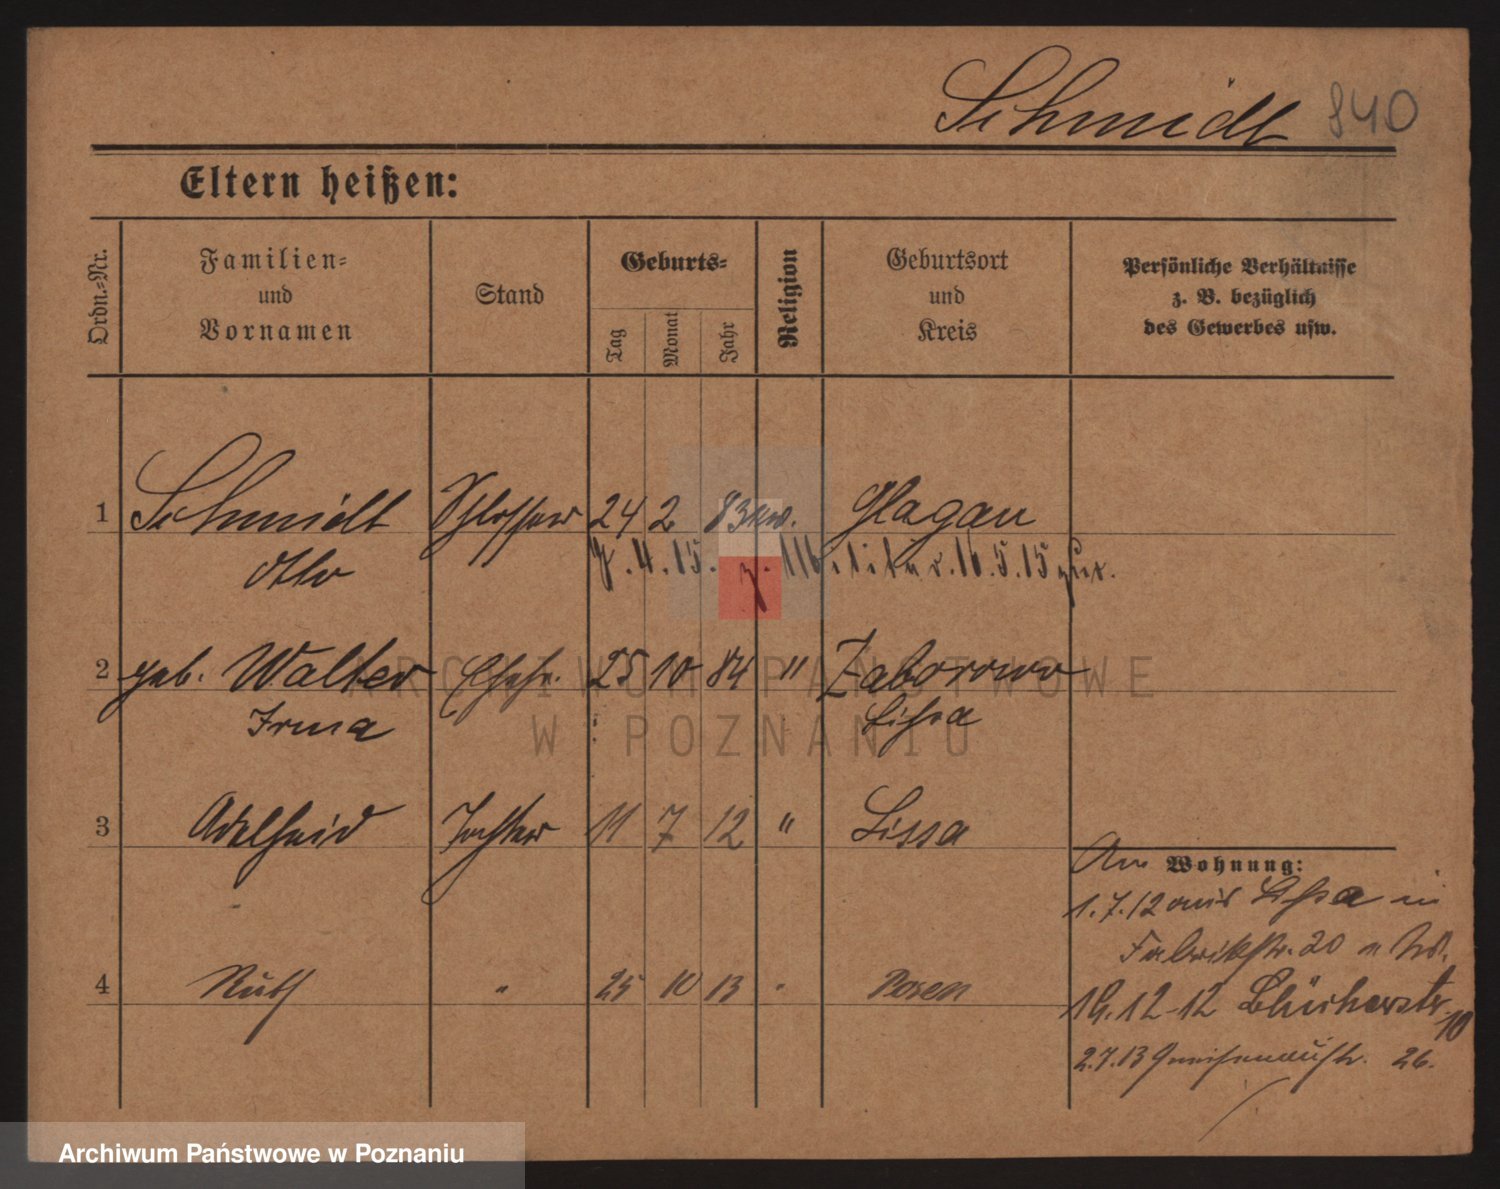 Schmidt 840
Eltern heißen:
Ordn.-Nr.
Familien-
und
Vornamen
Stand
Geburts-
Tag
Monat
Jahr
Religion
Geburtsort
und
Kreis
Persönliche Verhältnisse
z. B. bezüglich
des Gewerbes usw.
1 Schmidt Schlosser 24 2 83 Glogau
Otto
7.4.15. z. Militär. 16.5.15 zur.
2 geb. Walter Ehefr. 25 10 84 " Zaborowo
Irma Lissa
3 Adelheid Tochter 11 7 12 " Lissa
4 Ruth " 25 10 13 " Posen
Wohnung:
1.7.12 aus Lissa in
Fabrikstr. 20
16.12.12 Blücherstr. 10
2.7.13 Gneisenaustr. 26.
ARCHIWUM PAŃSTWOWE
W POZNANIU
Archiwum Państwowe w Poznaniu